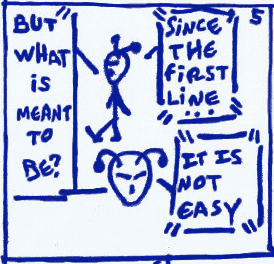 BUT
WHAT
iS
MEANT
TO
BE?
SiNCE
THE
FiRST
LiNE
...
5
IT IS
NOT
EASY